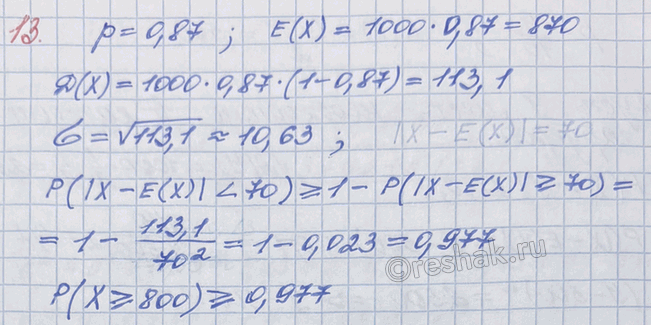 13. p = 0,87 ; E(X) = 1000·0,87 = 870
D(X) = 1000·0,87·(1-0,87) = 113,1
σ = √113,1 ≈ 10,63 ; |X-E(X)| = 70
P(|X-E(X)| < 70) ≥ 1 - P(|X-E(X)| ≥ 70) =
= 1 - 113,1/70² = 1 - 0,023 = 0,977
P(X ≥ 800) ≥ 0,977
©reshak.ru